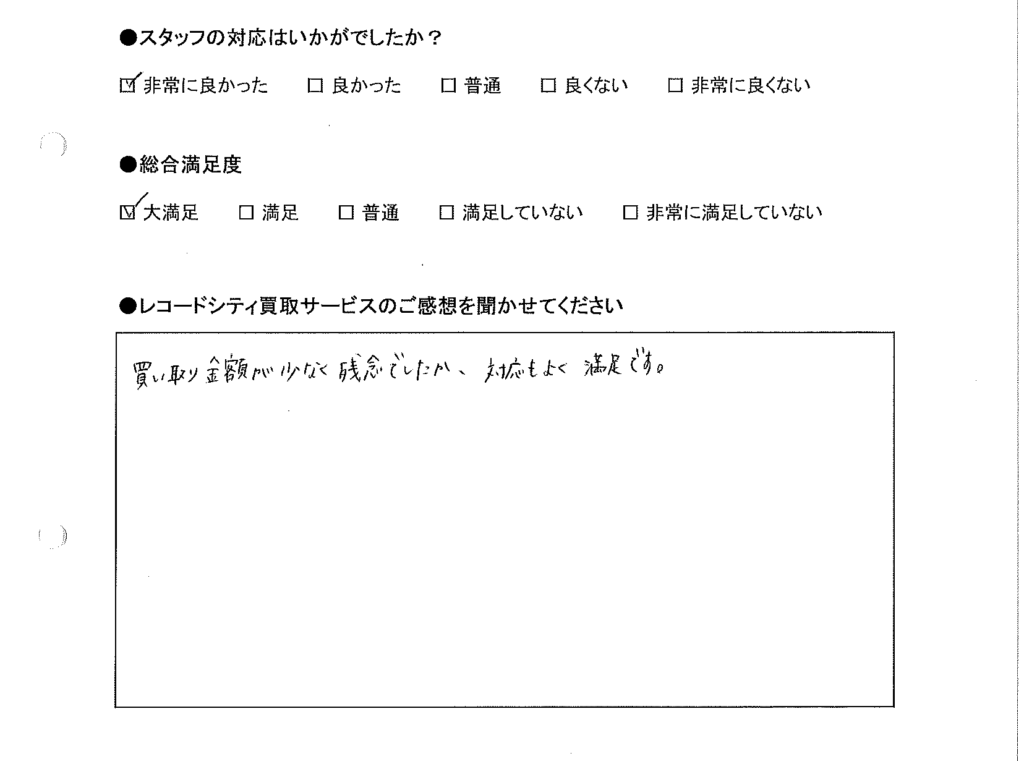 ●スタッフの対応はいかがでしたか？
☑非常に良かった □良かった □普通 □良くない □非常に良くない
●総合満足度
☑大満足 □満足 □普通 □満足していない □非常に満足していない
●レコードシティ買取サービスのご感想を聞かせてください
買い取り金額が少なく残念でしたが、対応もよく満足です。